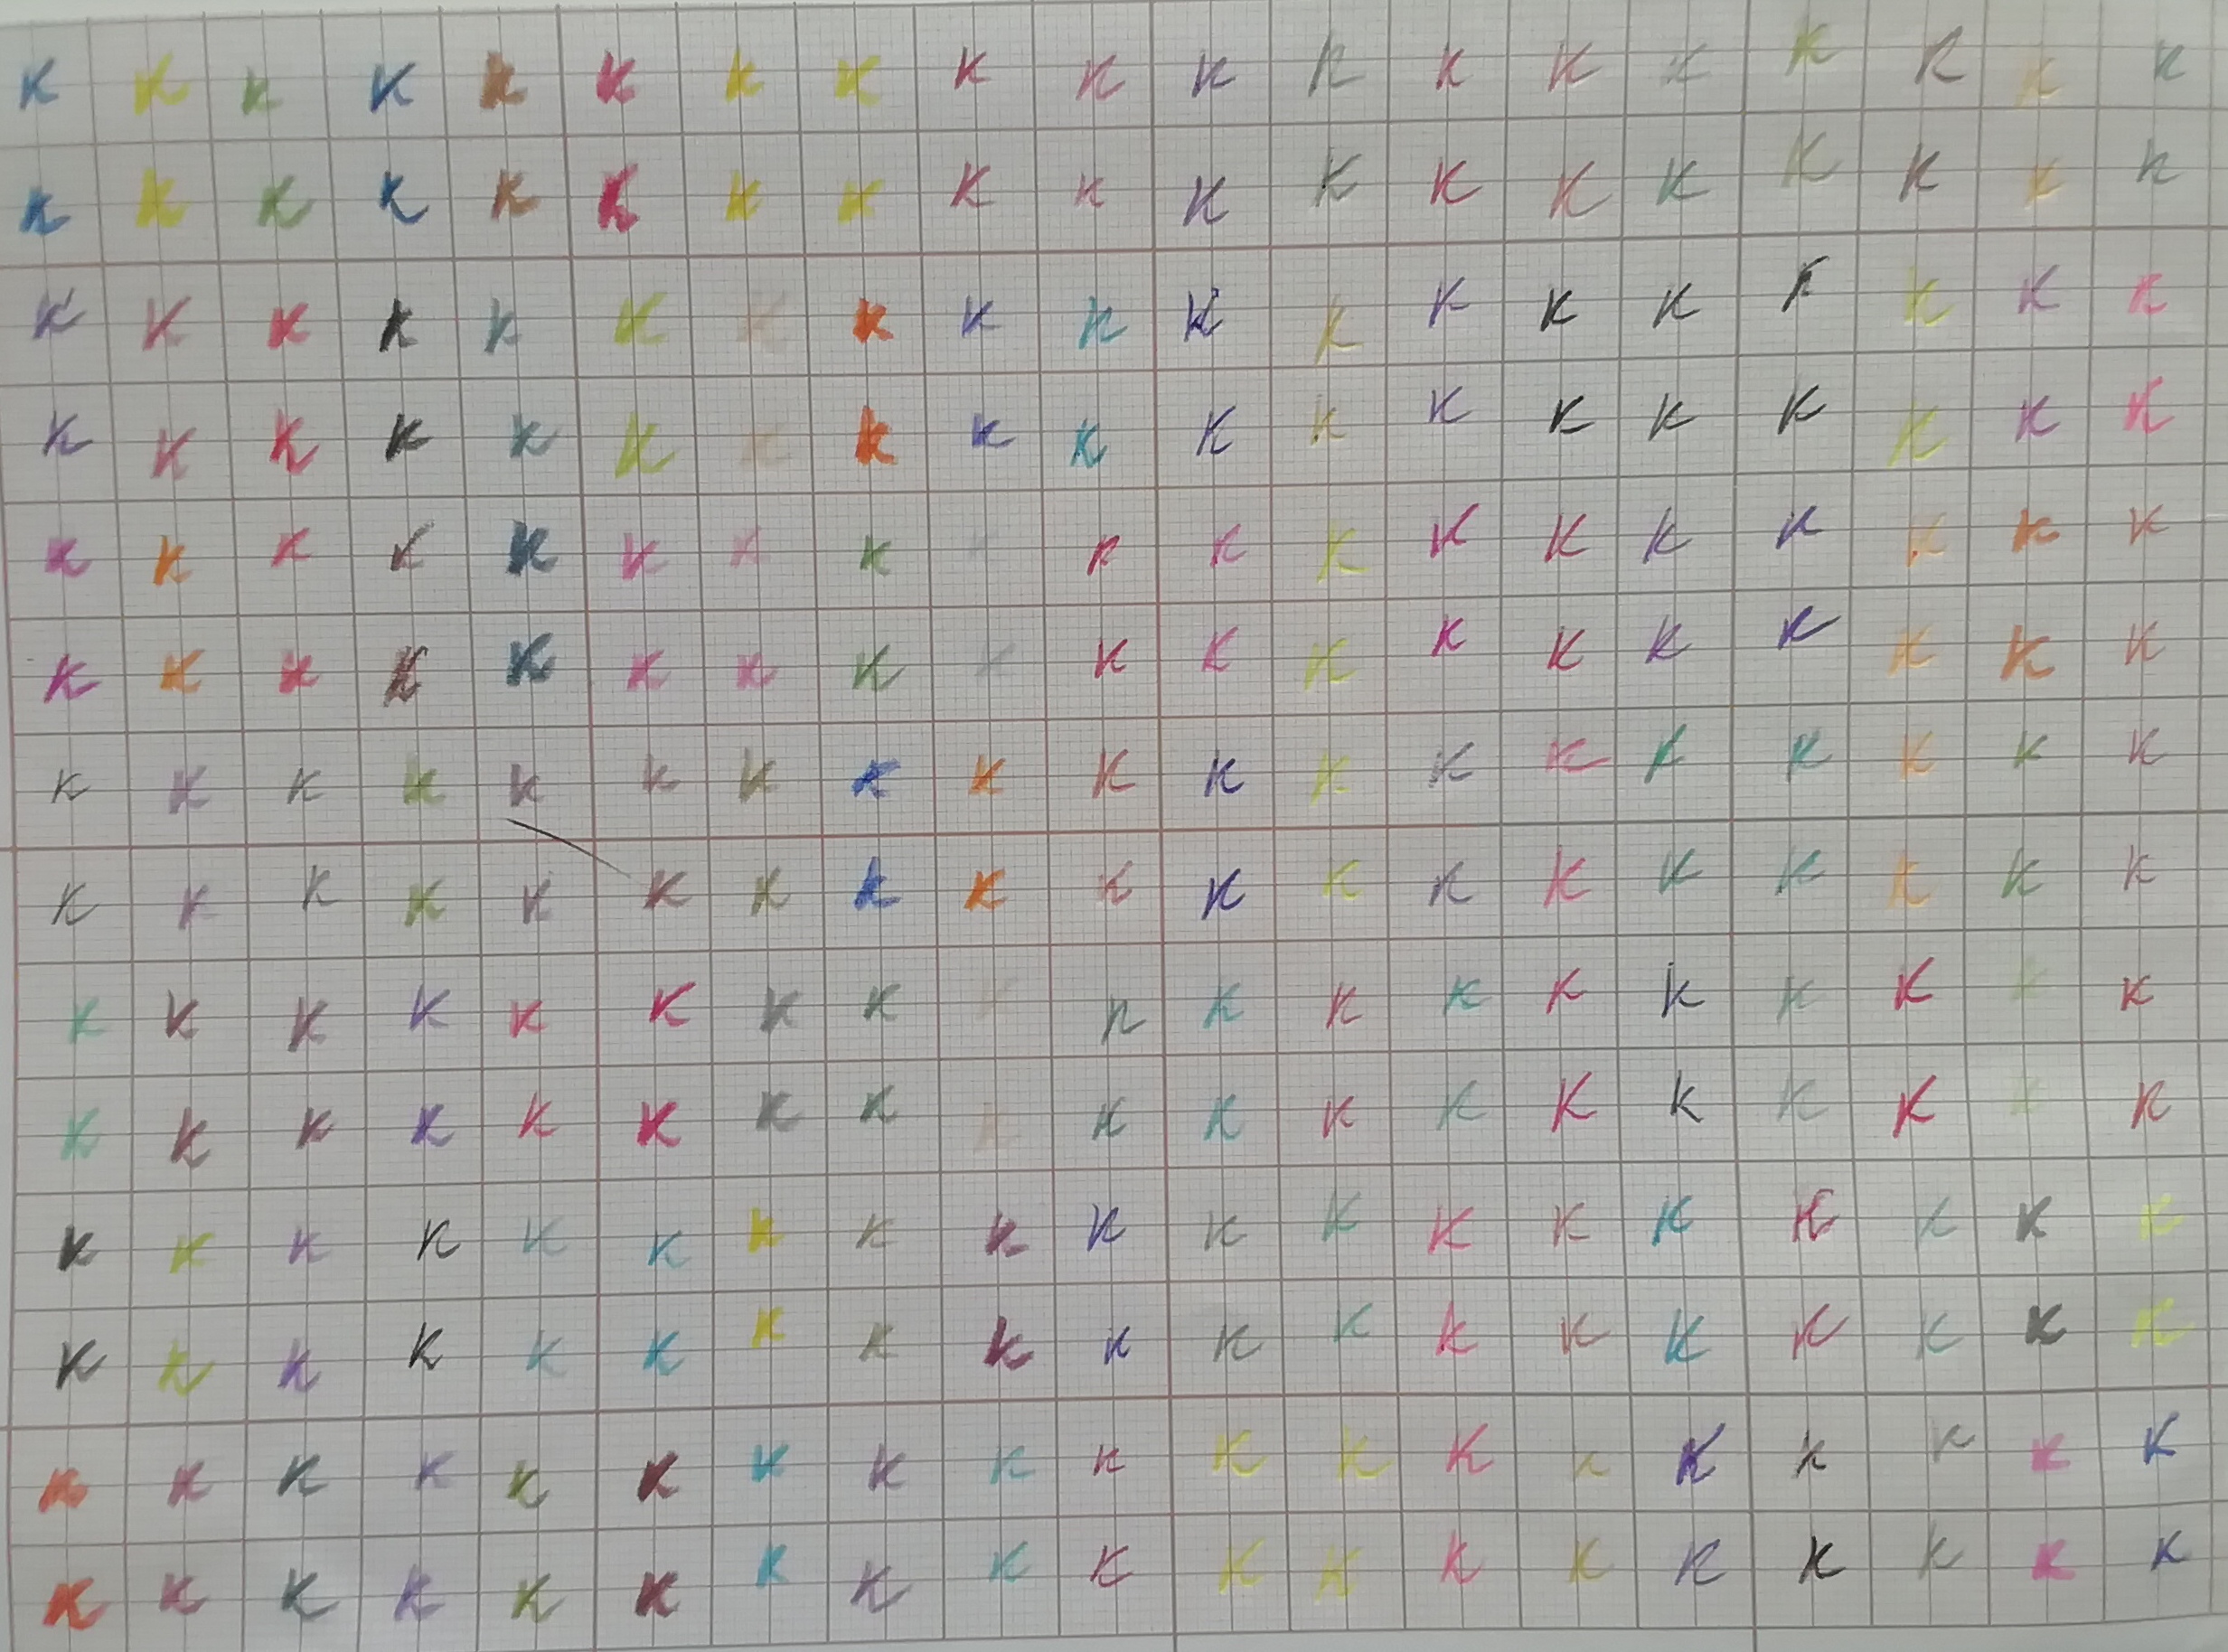 K K K K K K K K K K K K K K K K K K K
K K K K K K K K K K K K K K K K K K K
K K K K K K K K K K K K K K K K K K K
K K K K K K K K K K K K K K K K K K K
K K K K K K K K K K K K K K K K K K K
K K K K K K K K K K K K K K K K K K K
K K K K K K K K K K K K K K K K K K K
K K K K K K K K K K K K K K K K K K K
K K K K K K K K K K K K K K K K K K K
K K K K K K K K K K K K K K K K K K K
K K K K K K K K K K K K K K K K K K K
K K K K K K K K K K K K K K K K K K K
K K K K K K K K K K K K K K K K K K K
K K K K K K K K K K K K K K K K K K K